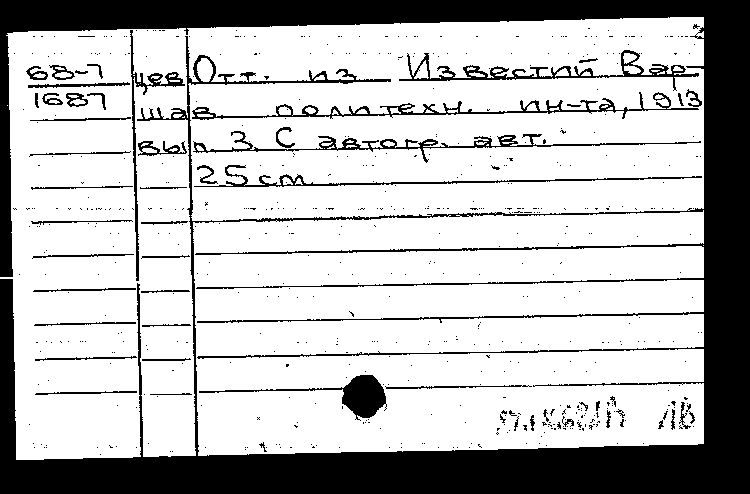 2
68-7 цев. Отт. из Известий Вар-
1687 шав. политехн. ин-та, 1913
вып. 3. С автогр. авт.
25 см
ЛВ